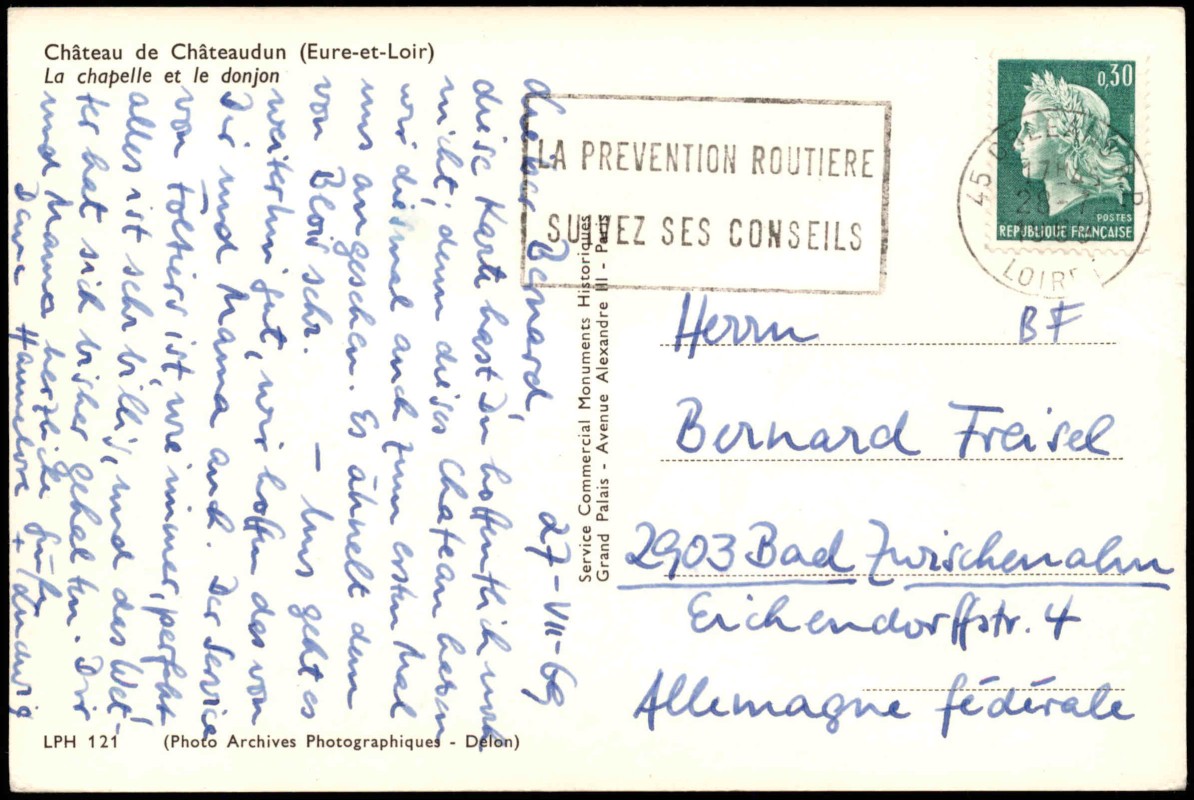 Château de Châteaudun (Eure-et-Loir)
La chapelle et le donjon
27-VII-69
Lieber Bernard,
diese Karte hast Du hoffentlich noch
nicht; denn dieses Chateau haben
wir diesmal auch zum ersten Mal
uns angesehen. Es ähnelt dem
von Blois sehr. — Uns geht es
weiterhin gut, wir hoffen das von
Dir und Mama auch. Der Service
von Foltiers ist, wie immer, perfekt
alles ist sehr billig, und das Wet-
ter hat sich bisher gehalten. Dir
und Mama herzliche Grüße
Deine Hannelore + Ludwig
LPH 121 (Photo Archives Photographiques - Delon)
Service Commercial Monuments Historiques
Grand Palais - Avenue Alexandre III - Paris
LA PREVENTION ROUTIERE
SUIVEZ SES CONSEILS
0,30
POSTES
REPUBLIQUE FRANÇAISE
45
LOIRET
Herrn BF
Bernard Freisel
2903 Bad Zwischenahn
Eichendorffstr. 4
Allemagne fédérale